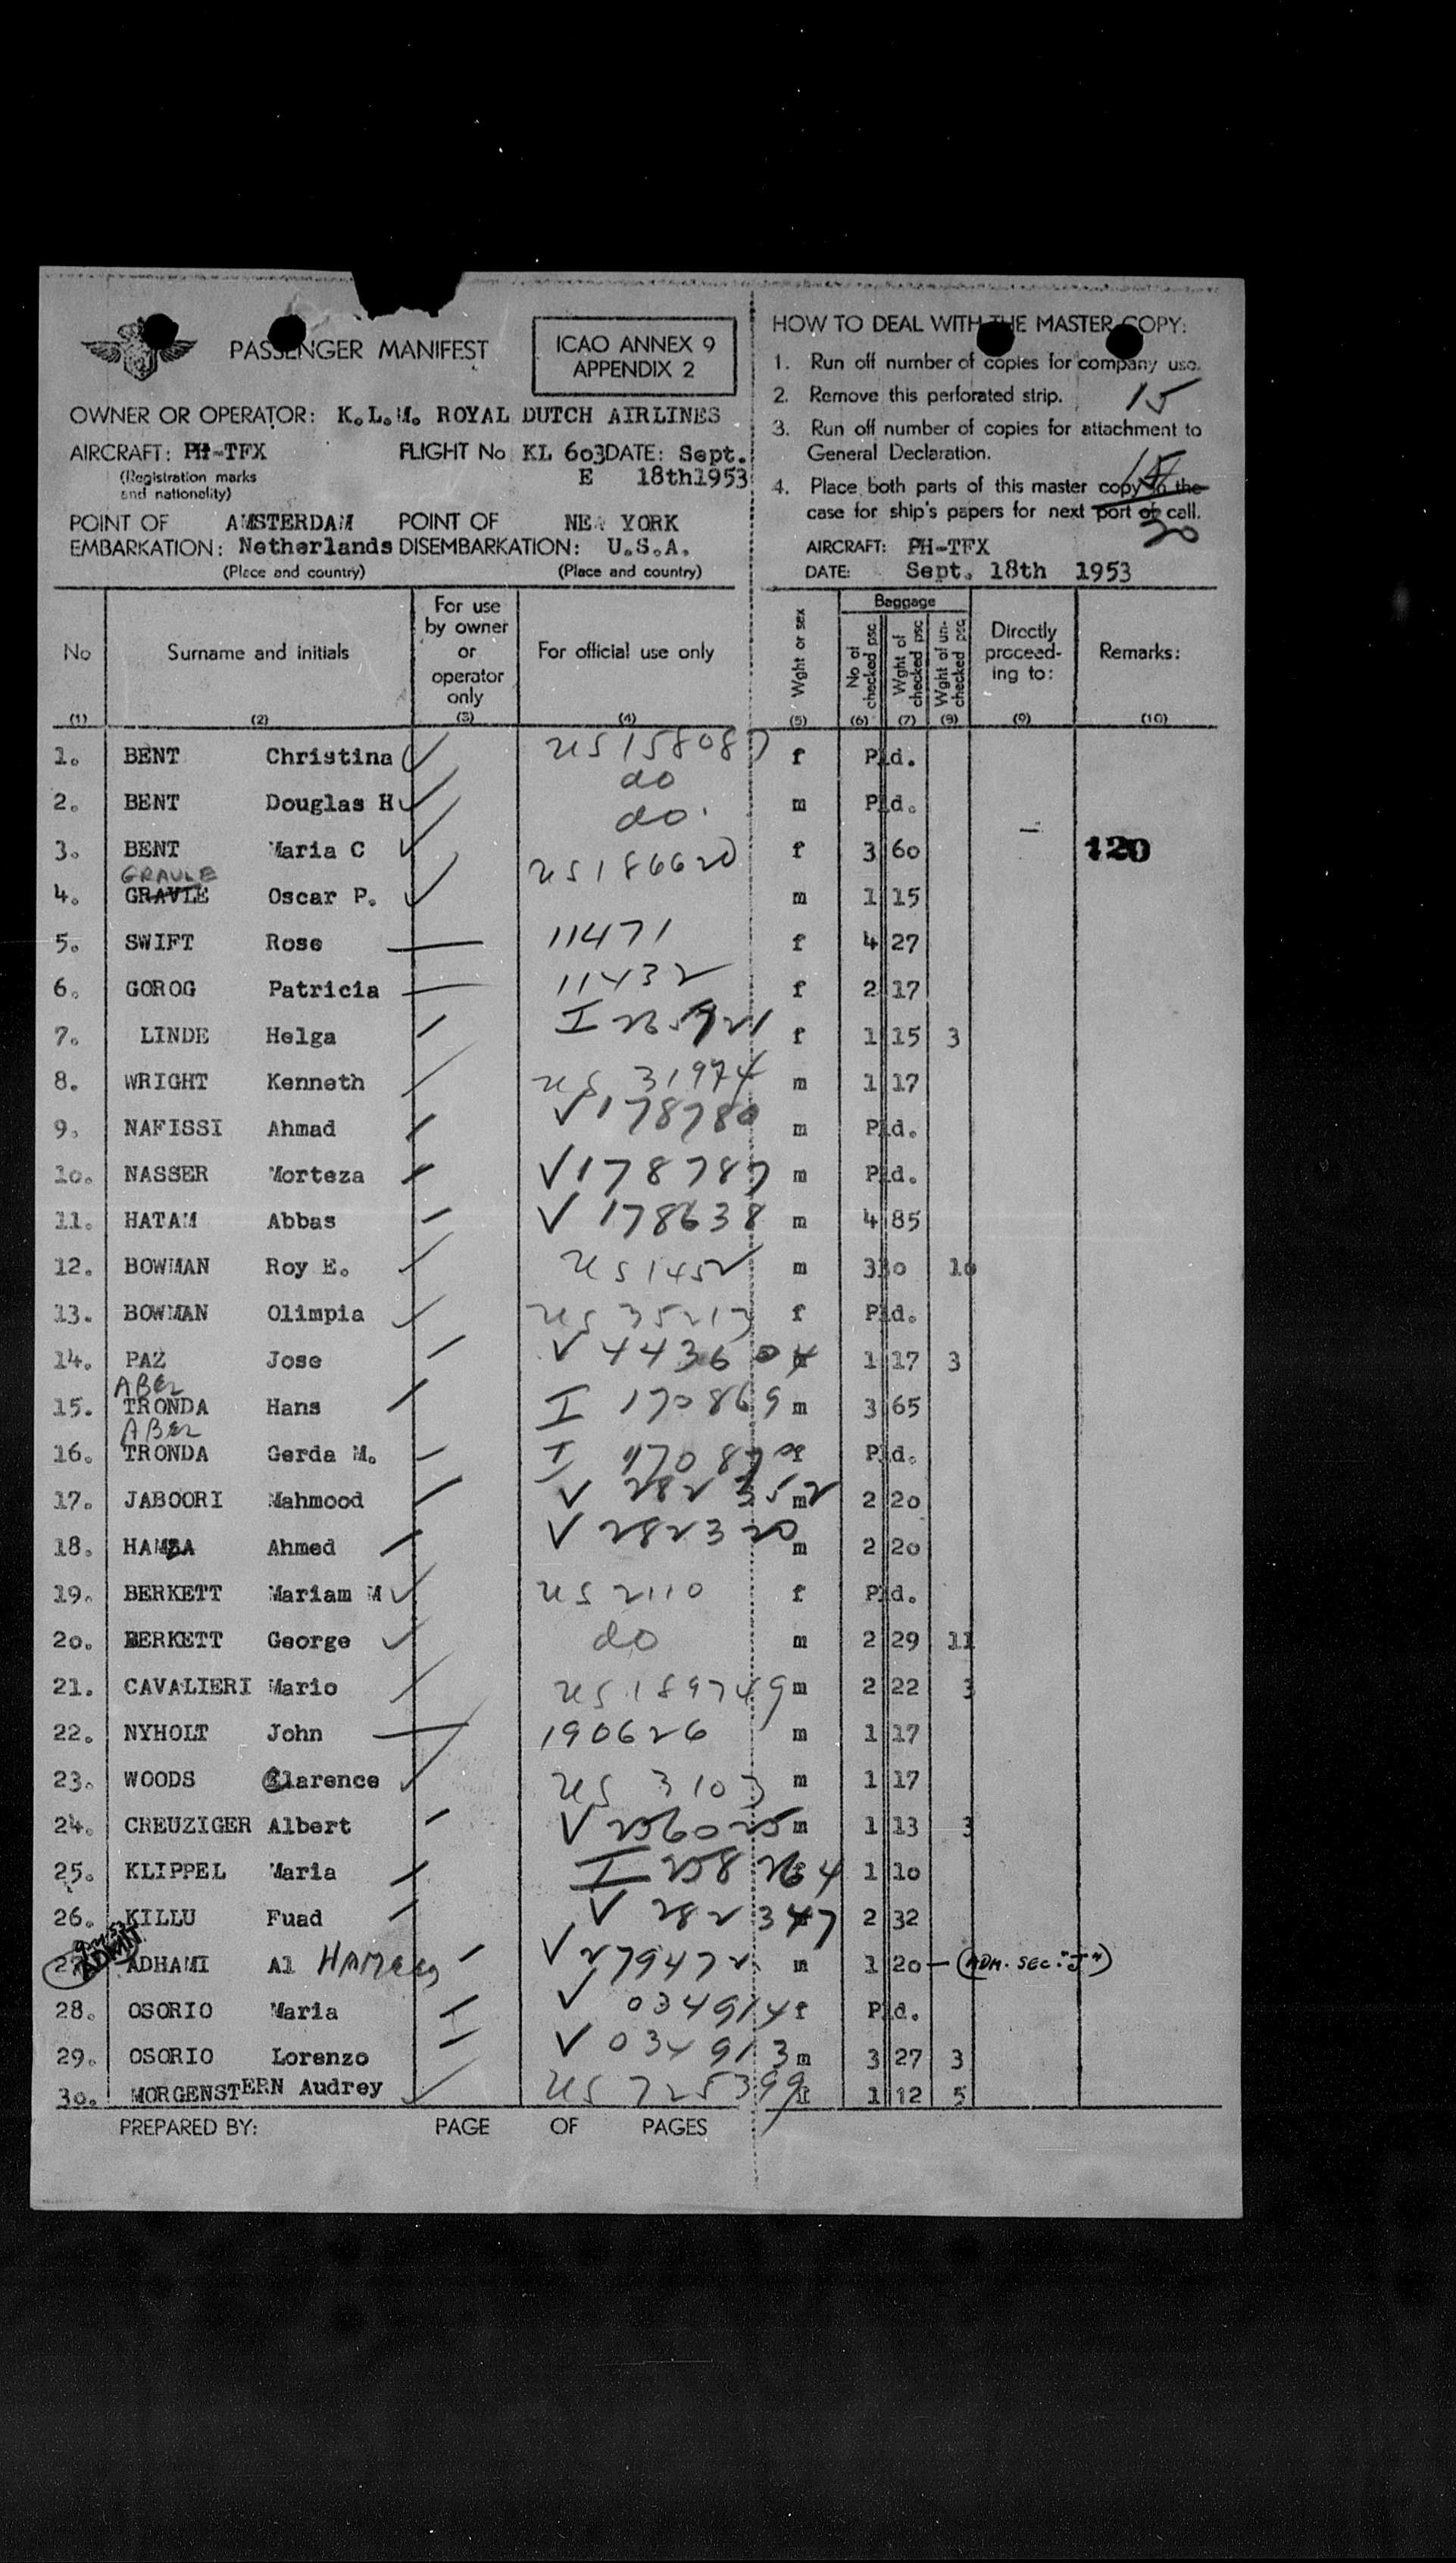 PASSENGER MANIFEST
ICAO ANNEX 9
APPENDIX 2
OWNER OR OPERATOR: K.L.M. ROYAL DUTCH AIRLINES
AIRCRAFT: PH-TFX FLIGHT No KL 603 DATE: Sept.
(Registration marks and nationality) E 18th1953
POINT OF AMSTERDAM POINT OF NEW YORK
EMBARKATION: Netherlands DISEMBARKATION: U.S.A.
(Place and country) (Place and country)
HOW TO DEAL WITH THE MASTER COPY:
1. Run off number of copies for company use.
2. Remove this perforated strip. 15
3. Run off number of copies for attachment to
General Declaration.
15
4. Place both parts of this master copy in the
case for ship's papers for next port of call.
30
AIRCRAFT: PH-TFX
DATE: Sept. 18th 1953
No Surname and initials For use by owner or operator only For official use only Wght or sex Baggage No of checked psc Wght of checked psc Wght of un-checked psc Directly proceed-ing to: Remarks:
(1) (2) (3) (4) (5) (6) (7) (8) (9) (10)
1. BENT Christina us 158087 f Pld.
2. BENT Douglas H do m Pld.
3. BENT Maria C do. f 3 60 120
GRAULE
4. GRAVLE Oscar P. us 186620 m 1 15
5. SWIFT Rose 11471 f 4 27
6. GOROG Patricia 11432 f 2 17
7. LINDE Helga f 1 15 3
8. WRIGHT Kenneth us 31974 m 1 17
9. NAFISSI Ahmad V 178780 m Pld.
10. NASSER Morteza V 178787 m Pld.
11. HATAM Abbas V 178638 m 4 85
12. BOWMAN Roy E. us 1452 m 3 30 10
13. BOWMAN Olimpia us 35213 f Pld.
14. PAZ Jose V 443604 1 17 3
ABEL
15. TRONDA Hans I 170869 m 3 65
ABEL
16. TRONDA Gerda M. I 170870 f Pld.
17. JABOORI Mahmood V 282352 m 2 20
18. HAMZA Ahmed V 282320 m 2 20
19. BERKETT Mariam M us 2110 f Pld.
20. BERKETT George do m 2 29 11
21. CAVALIERI Mario us 189749 m 2 22 3
22. NYHOLT John 190626 m 1 17
23. WOODS Clarence us 3103 m 1 17
24. CREUZIGER Albert V 256025 m 1 13 3
25. KLIPPEL Maria I 258264 1 10
26. KILLU Fuad V 282347 2 32
27. ADMIT ADHAMI Al V 279472 m 1 20 — (ADM. SEC. "J")
28. OSORIO Maria V 034914 f Pld.
29. OSORIO Lorenzo V 034913 m 3 27 3
30. MORGENSTERN Audrey us 725399 f 1 12 5
PREPARED BY: PAGE OF PAGES